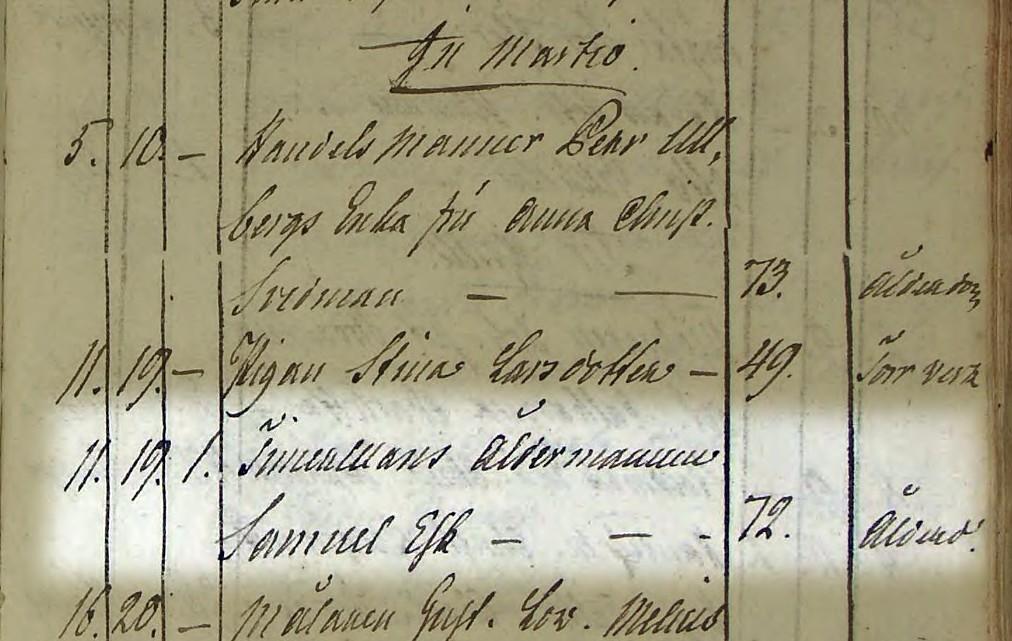 In Martio.
5. 10. – Handels Mannen Pehr Ull,
bergs Enka fru Anna Christ.
Svedman – — 73. Ålderdom
11. 19. – Pigan Stina Larsdotter – 49. Torr verk
11. 19. 1. Åldermannen
Samuel Ek – — - 72. Ålderd.
16. 20. – Målaren Gust. Lov. Melius